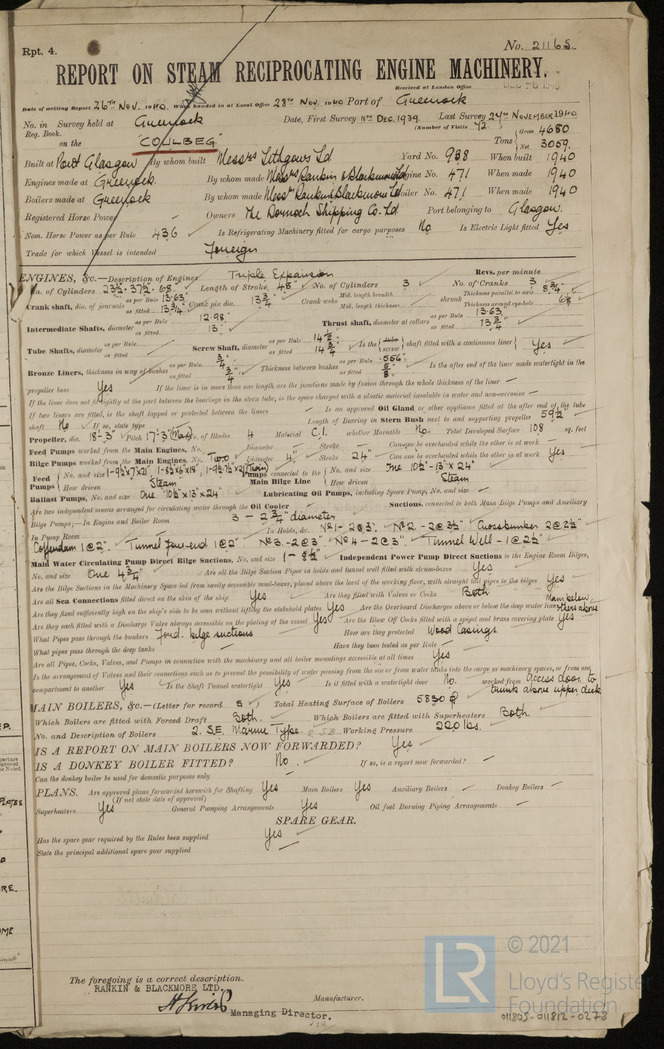 Rpt. 4.
No. 21165.
REPORT ON STEAM RECIPROCATING ENGINE MACHINERY.
Received at London Office
Date of writing Report 26TH NOV. 1940. When handed in at Local Office 28TH NOV. 1940 Port of Greenock
No. in Survey held at Greenock Date, First Survey 11TH DEC. 1939. Last Survey 24TH NOVEMBER 1940
Reg. Book. (Number of Visits 72.)
on the "COULBEG" Tons Gross 4680 Net 3059.
Built at Port Glasgow By whom built Messrs Lithgows Ld Yard No. 938 When built 1940
Engines made at Greenock. By whom made Messrs Rankin & Blackmore Ld Engine No. 471 When made 1940
Boilers made at Greenock By whom made Messrs Rankin & Blackmore Ld Boiler No. 471 When made 1940
Registered Horse Power Owners The Dornoch Shipping Co. Ld Port belonging to Glasgow.
Nom. Horse Power as per Rule 436 Is Refrigerating Machinery fitted for cargo purposes No Is Electric Light fitted Yes
Trade for which Vessel is intended Foreign
ENGINES, &c.—Description of Engines Triple Expansion Revs. per minute
No. of Cylinders 23½ - 37½ - 68 Length of Stroke 48" No. of Cylinders 3 No. of Cranks 3
Crank shaft, dia. of journals as per Rule 13.63 as fitted 13¾ Crank pin dia. 13¾ Crank webs Mid. length breadth Mid. length thickness shrunk Thickness parallel to axis 8¾" Thickness around eyehole 6⅞
Intermediate Shafts, diameter as per Rule 12.98 as fitted 13" Thrust shaft, diameter at collars as per Rule 13.63 as fitted 13¾"
Tube Shafts, diameter as per Rule as fitted Screw Shaft, diameter as per Rule 14½" as fitted 14¾" Is the tube screw shaft fitted with a continuous liner Yes
Bronze Liners, thickness in way of bushes as per Rule as fitted Thickness between bushes as per Rule .556 as fitted ⅝" Is the after end of the liner made watertight in the
propeller boss Yes If the liner is in more than one length are the junctions made by fusion through the whole thickness of the liner —
If the liner does not fit tightly at the part between the bearings in the stern tube, is the space charged with a plastic material insoluble in water and non-corrosive —
If two liners are fitted, is the shaft lapped or protected between the liners — Is an approved Oil Gland or other appliance fitted at the after end of the tube
shaft No If so, state type Length of Bearing in Stern Bush next to and supporting propeller 59½
Propeller, dia. 18'-3" Pitch 17'-3 (Mean) No. of Blades 4 Material C.I. whether Moveable No. Total Developed Surface 108 sq. feet
Feed Pumps worked from the Main Engines, No. — Diameter — Stroke — Can one be overhauled while the other is at work —
Bilge Pumps worked from the Main Engines, No. Two Diameter 4" Stroke 24" Can one be overhauled while the other is at work Yes
Feed Pumps No. and size How driven Steam Pumps connected to the Main Bilge Line No. and size One 10½"-13"x24" How driven Steam
Ballast Pumps, No. and size One 10½"x13"x24" Lubricating Oil Pumps, including Spare Pump, No. and size —
Are two independent means arranged for circulating water through the Oil Cooler — Suctions, connected to both Main Bilge Pumps and Auxiliary
Bilge Pumps;—In Engine and Boiler Room 3 — 2¾" diameter
In Pump Room — In Holds, &c. No 1 - 2@3". No 2. - 2@3½" Crossbunker 2@2½"
Cofferdam 1@2". Tunnel fore-end 1@2" No 3. - 2@3" No 4 - 2@3" Tunnel Well - 1@2½"
Main Water Circulating Pump Direct Bilge Suctions, No. and size 1 - 8½" Independent Power Pump Direct Suctions to the Engine Room Bilges,
No. and size One 4¾" Are all the Bilge Suction Pipes in holds and tunnel well fitted with strum-boxes Yes
Are the Bilge Suctions in the Machinery Space led from easily accessible mud-boxes, placed above the level of the working floor, with straight tail pipes to the bilges Yes
Are all Sea Connections fitted direct on the skin of the ship Yes Are they fitted with Valves or Cocks Both
Are they fixed sufficiently high on the ship's side to be seen without lifting the stokehold plates Yes Are the Overboard Discharges above or below the deep water line Main below, others above
Are they each fitted with a Discharge Valve always accessible on the plating of the vessel Yes Are the Blow Off Cocks fitted with a spigot and brass covering plate Yes
What Pipes pass through the bunkers Ford. bilge suctions How are they protected Wood Casings
What pipes pass through the deep tanks Have they been tested as per Rule —
Are all Pipes, Cocks, Valves, and Pumps in connection with the machinery and all boiler mountings accessible at all times Yes
Is the arrangement of Valves and their connections such as to prevent the possibility of water passing from the sea or from water tanks into the cargo or machinery spaces, or from one
compartment to another Yes Is the Shaft Tunnel watertight Yes Is it fitted with a watertight door No. worked from access door to trunk above upper deck
MAIN BOILERS, &c.—(Letter for record S) Total Heating Surface of Boilers 5830
Which Boilers are fitted with Forced Draft Both. Which Boilers are fitted with Superheaters Both.
No. and Description of Boilers 2. S.E. Marine Type. 2 SB Working Pressure 220 lbs.
IS A REPORT ON MAIN BOILERS NOW FORWARDED? Yes
IS A DONKEY BOILER FITTED? No. If so, is a report now forwarded? —
Can the donkey boiler be used for domestic purposes only
PLANS. Are approved plans forwarded herewith for Shafting Yes Main Boilers Yes Auxiliary Boilers — Donkey Boilers —
(If not state date of approval)
Superheaters Yes General Pumping Arrangements Yes Oil fuel Burning Piping Arrangements —
SPARE GEAR.
Has the spare gear required by the Rules been supplied Yes
State the principal additional spare gear supplied
The foregoing is a correct description.
RANKIN & BLACKMORE LTD.
Manufacturer.
Managing Director.
LR
© 2021
Lloyd's Register
Foundation
011805-011812-0273